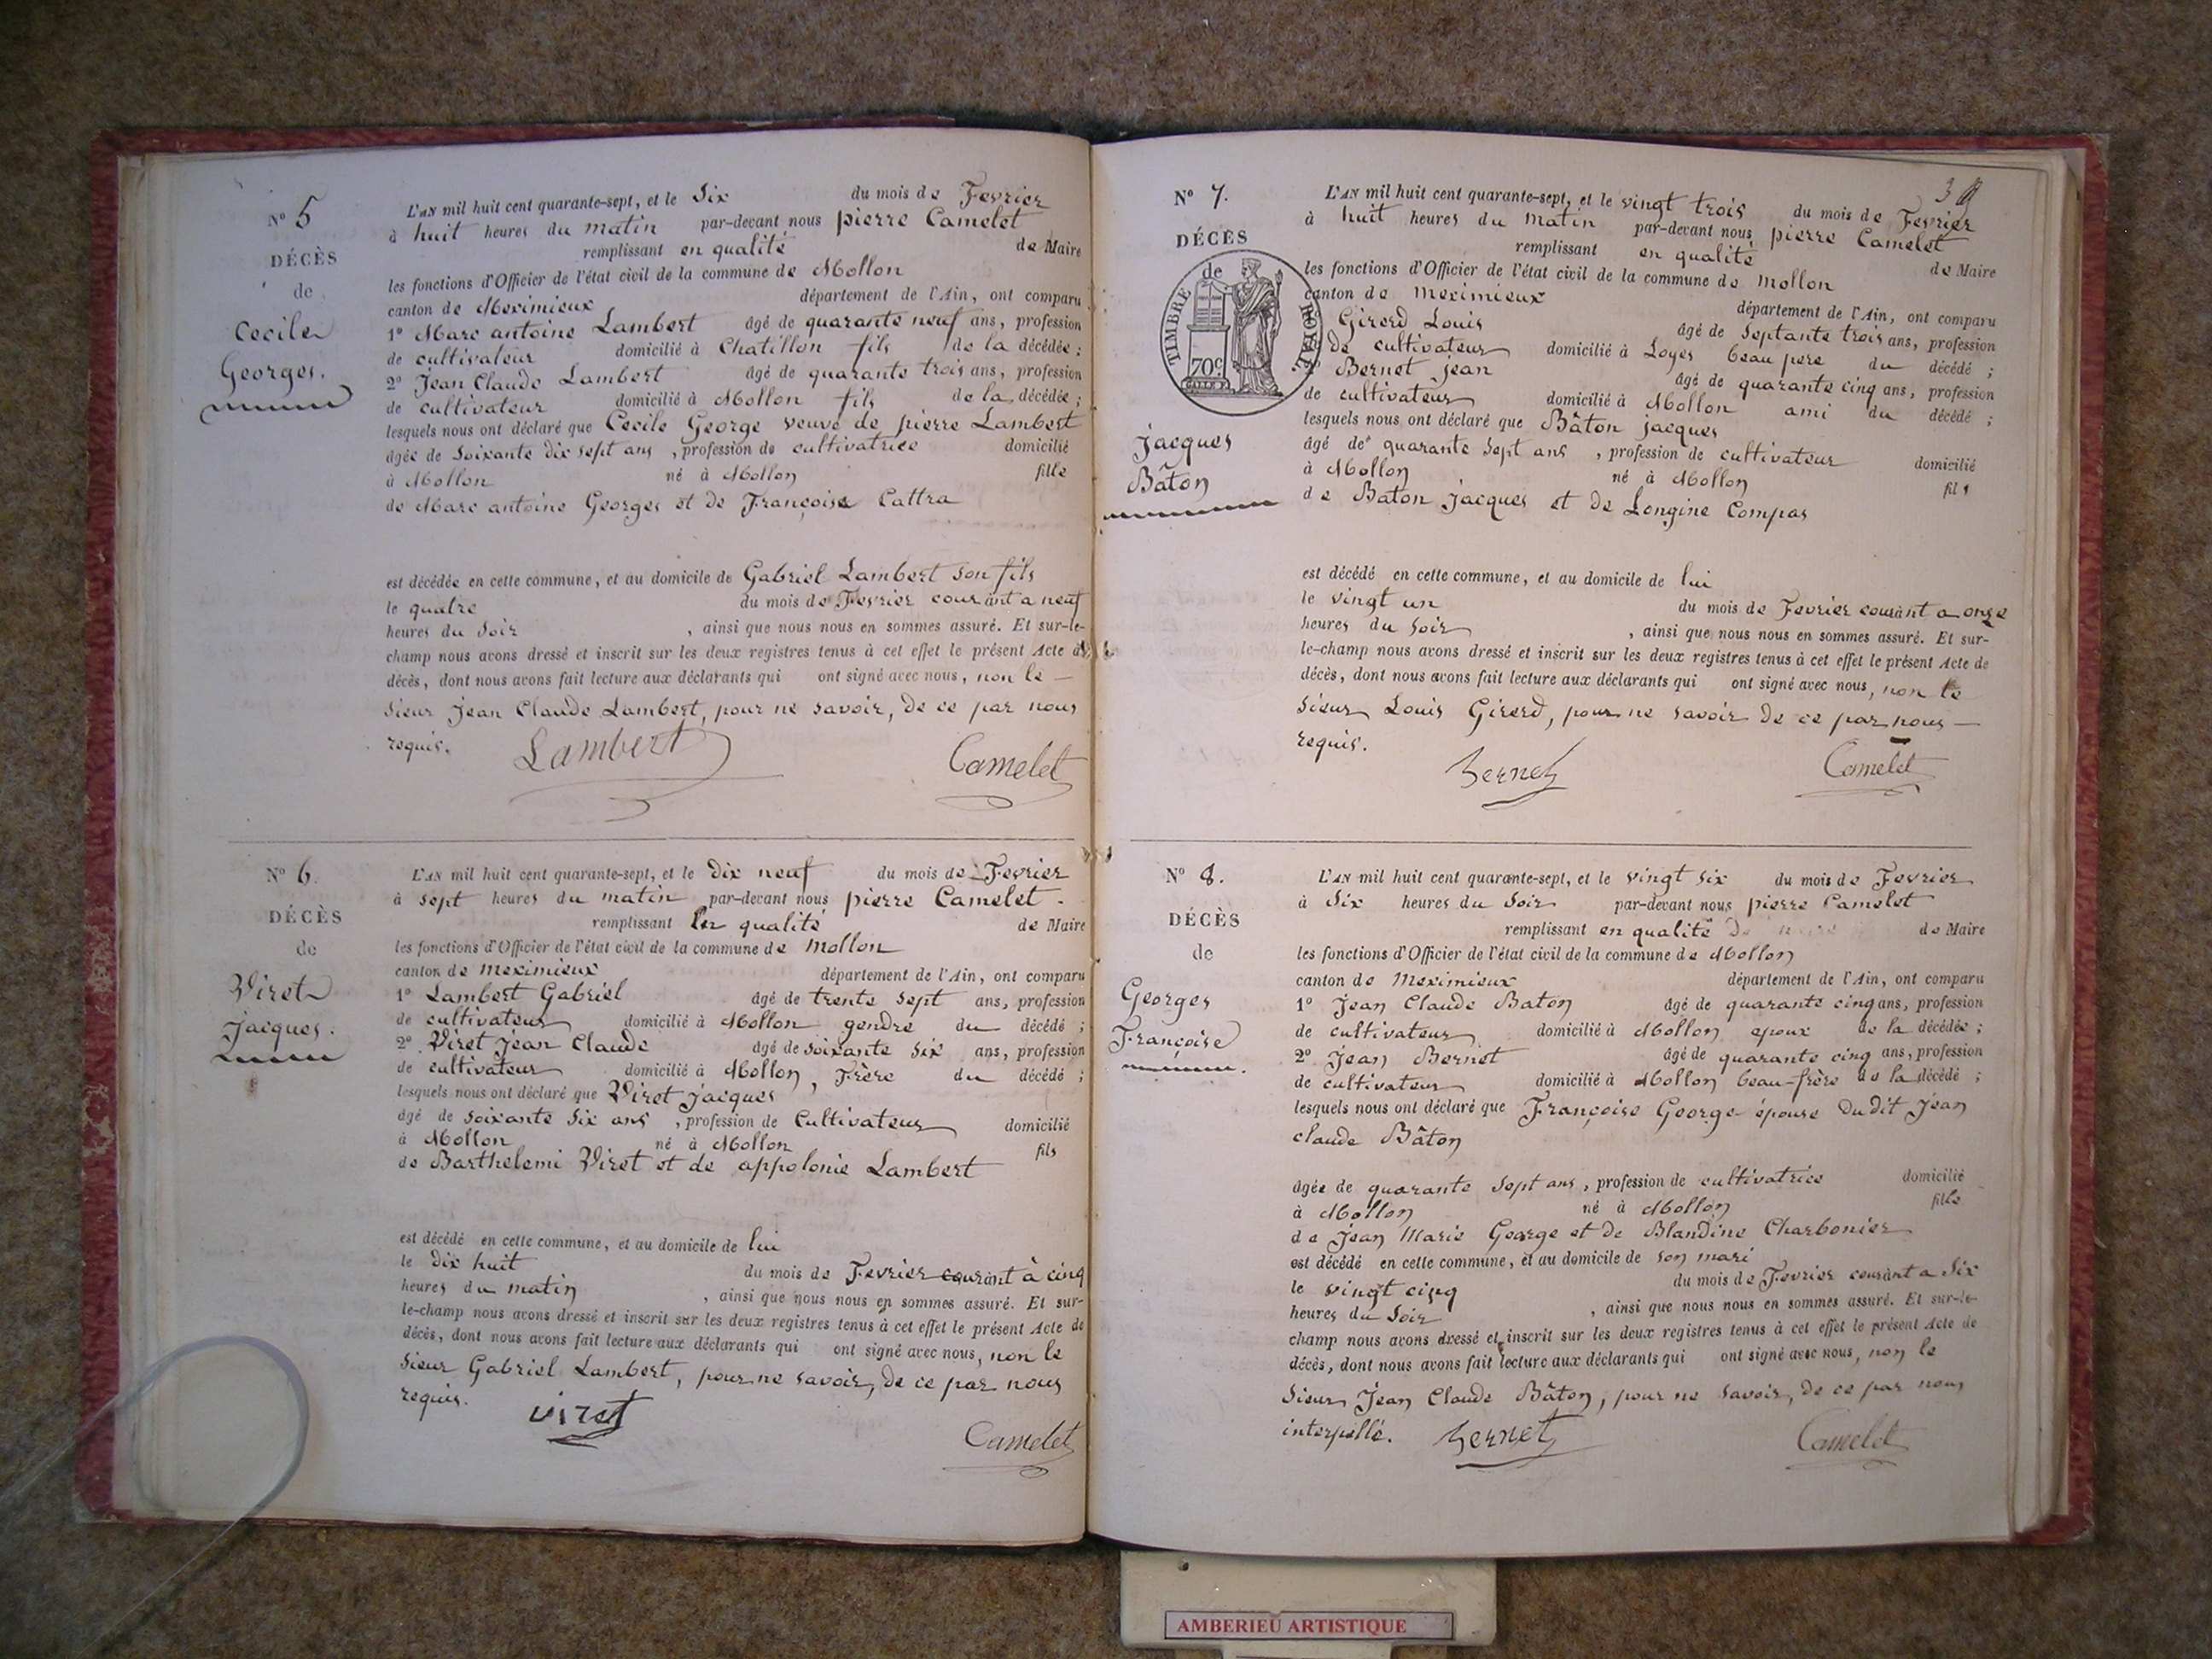 N° 5
DÉCÈS
de
Cecile
Georges.
L'AN mil huit cent quarante-sept, et le Six du mois de Fevrier
à huit heures du matin par-devant nous pierre Camelet
remplissant en qualité de Maire
les fonctions d'Officier de l'état civil de la commune de Mollon
canton de Meximieux département de l'Ain, ont comparu
1° Marc antoine Lambert âgé de quarante neuf ans, profession
de cultivateur domicilié à Chatillon fils de la décédée ;
2° Jean Claude Lambert âgé de quarante trois ans, profession
de cultivateur domicilié à Mollon fils de la décédée ;
lesquels nous ont déclaré que Cecile George veuve de pierre Lambert
âgée de Soixante dix sept ans , profession de cultivatrice domicilié
à Mollon né à Mollon fille
de Marc antoine Georges et de Françoise Cattra
est décédée en cette commune, et au domicile de Gabriel Lambert son fils
le quatre du mois de Fevrier courant a neuf
heures du Soir , ainsi que nous nous en sommes assuré. Et sur-le-
champ nous avons dressé et inscrit sur les deux registres tenus à cet effet le présent Acte de
décès, dont nous avons fait lecture aux déclarants qui ont signé avec nous, non le —
Sieur Jean Claude Lambert, pour ne savoir, de ce par nous
requis. Lambert Camelet
N° 6.
DÉCÈS
de
Viret
jacques.
L'AN mil huit cent quarante-sept, et le dix neuf du mois de Fevrier
à sept heures du matin par-devant nous pierre Camelet .
remplissant en qualité de Maire
les fonctions d'Officier de l'état civil de la commune de Mollon
canton de Meximieux département de l'Ain, ont comparu
1° Lambert Gabriel âgé de trente sept ans, profession
de cultivateur domicilié à Mollon gendre du décédé ;
2° Viret Jean Claude âgé de soixante six ans, profession
de cultivateur domicilié à Mollon, Frère du décédé ;
lesquels nous ont déclaré que Viret jacques
âgé de soixante Six ans , profession de Cultivateur domicilié
à Mollon né à Mollon fils
de Barthelemi Viret et de appolonie Lambert
est décédé en cette commune, et au domicile de lui
le dix huit du mois de Fevrier courant à cinq
heures du matin , ainsi que nous nous en sommes assuré. Et sur-
le-champ nous avons dressé et inscrit sur les deux registres tenus à cet effet le présent Acte de
décès, dont nous avons fait lecture aux déclarants qui ont signé avec nous, non le
Sieur Gabriel Lambert, pour ne savoir, de ce par nous
requis. Viret
Camelet
N° 7.
DÉCÈS
de
TIMBRE ROYAL
70c
jacques
Bâton
L'AN mil huit cent quarante-sept, et le vingt trois du mois de Fevrier
à huit heures du matin par-devant nous pierre Camelet
remplissant en qualité de Maire
les fonctions d'Officier de l'état civil de la commune de Mollon
canton de Meximieux département de l'Ain, ont comparu
Girerd Louis âgé de Septante trois ans, profession
de cultivateur domicilié à Loyes beau pere du décédé ;
Bernet jean âgé de quarante cinq ans, profession
de cultivateur domicilié à Mollon ami du décédé ;
lesquels nous ont déclaré que Bâton jacques
âgé de quarante Sept ans , profession de cultivateur domicilié
à Mollon né à Mollon fils
de Baton jacques et de Longine Compas
est décédé en cette commune, et au domicile de lui
le vingt un du mois de Fevrier courant a onze
heures du Soir , ainsi que nous nous en sommes assuré. Et sur-
le-champ nous avons dressé et inscrit sur les deux registres tenus à cet effet le présent Acte de
décès, dont nous avons fait lecture aux déclarants qui ont signé avec nous, non le
Sieur Louis Girerd, pour ne savoir de ce par nous —
requis. Bernet Camelet
N° 8.
DÉCÈS
de
Georges
Françoise
L'AN mil huit cent quarante-sept, et le vingt six du mois de Fevrier
à Six heures du Soir par-devant nous pierre Camelet
remplissant en qualité de Maire
les fonctions d'Officier de l'état civil de la commune de Mollon
canton de Meximieux département de l'Ain, ont comparu
1° Jean Claude Baton âgé de quarante cinq ans, profession
de cultivateur domicilié à Mollon epoux de la décédée ;
2° Jean Bernet âgé de quarante cinq ans, profession
de cultivateur domicilié à Mollon beau-frère de la décédé ;
lesquels nous ont déclaré que Françoise George épouse dudit Jean
claude Bâton
âgée de quarante Sept ans , profession de cultivatrice domicilié
à Mollon né à Mollon fille
de Jean Marie George et de Blandine Charbonier
est décédé en cette commune, et au domicile de son mari
le vingt cinq du mois de Fevrier courant a Six
heures du Soir , ainsi que nous nous en sommes assuré. Et sur-le-
champ nous avons dressé et inscrit sur les deux registres tenus à cet effet le présent Acte de
décès, dont nous avons fait lecture aux déclarants qui ont signé avec nous, non le
Sieur Jean Claude Bâton, pour ne savoir, de ce par nous
interpellé. Bernet Camelet
AMBERIEU ARTISTIQUE